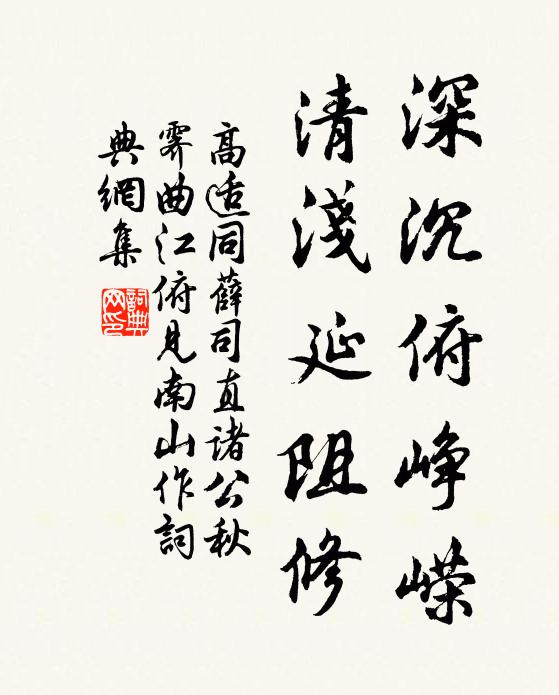 深沉俯峥嵘
清淺延阻修
高适同薛司直諸公秋
霽曲江俯見南山作詞
典網集
詞典
网印